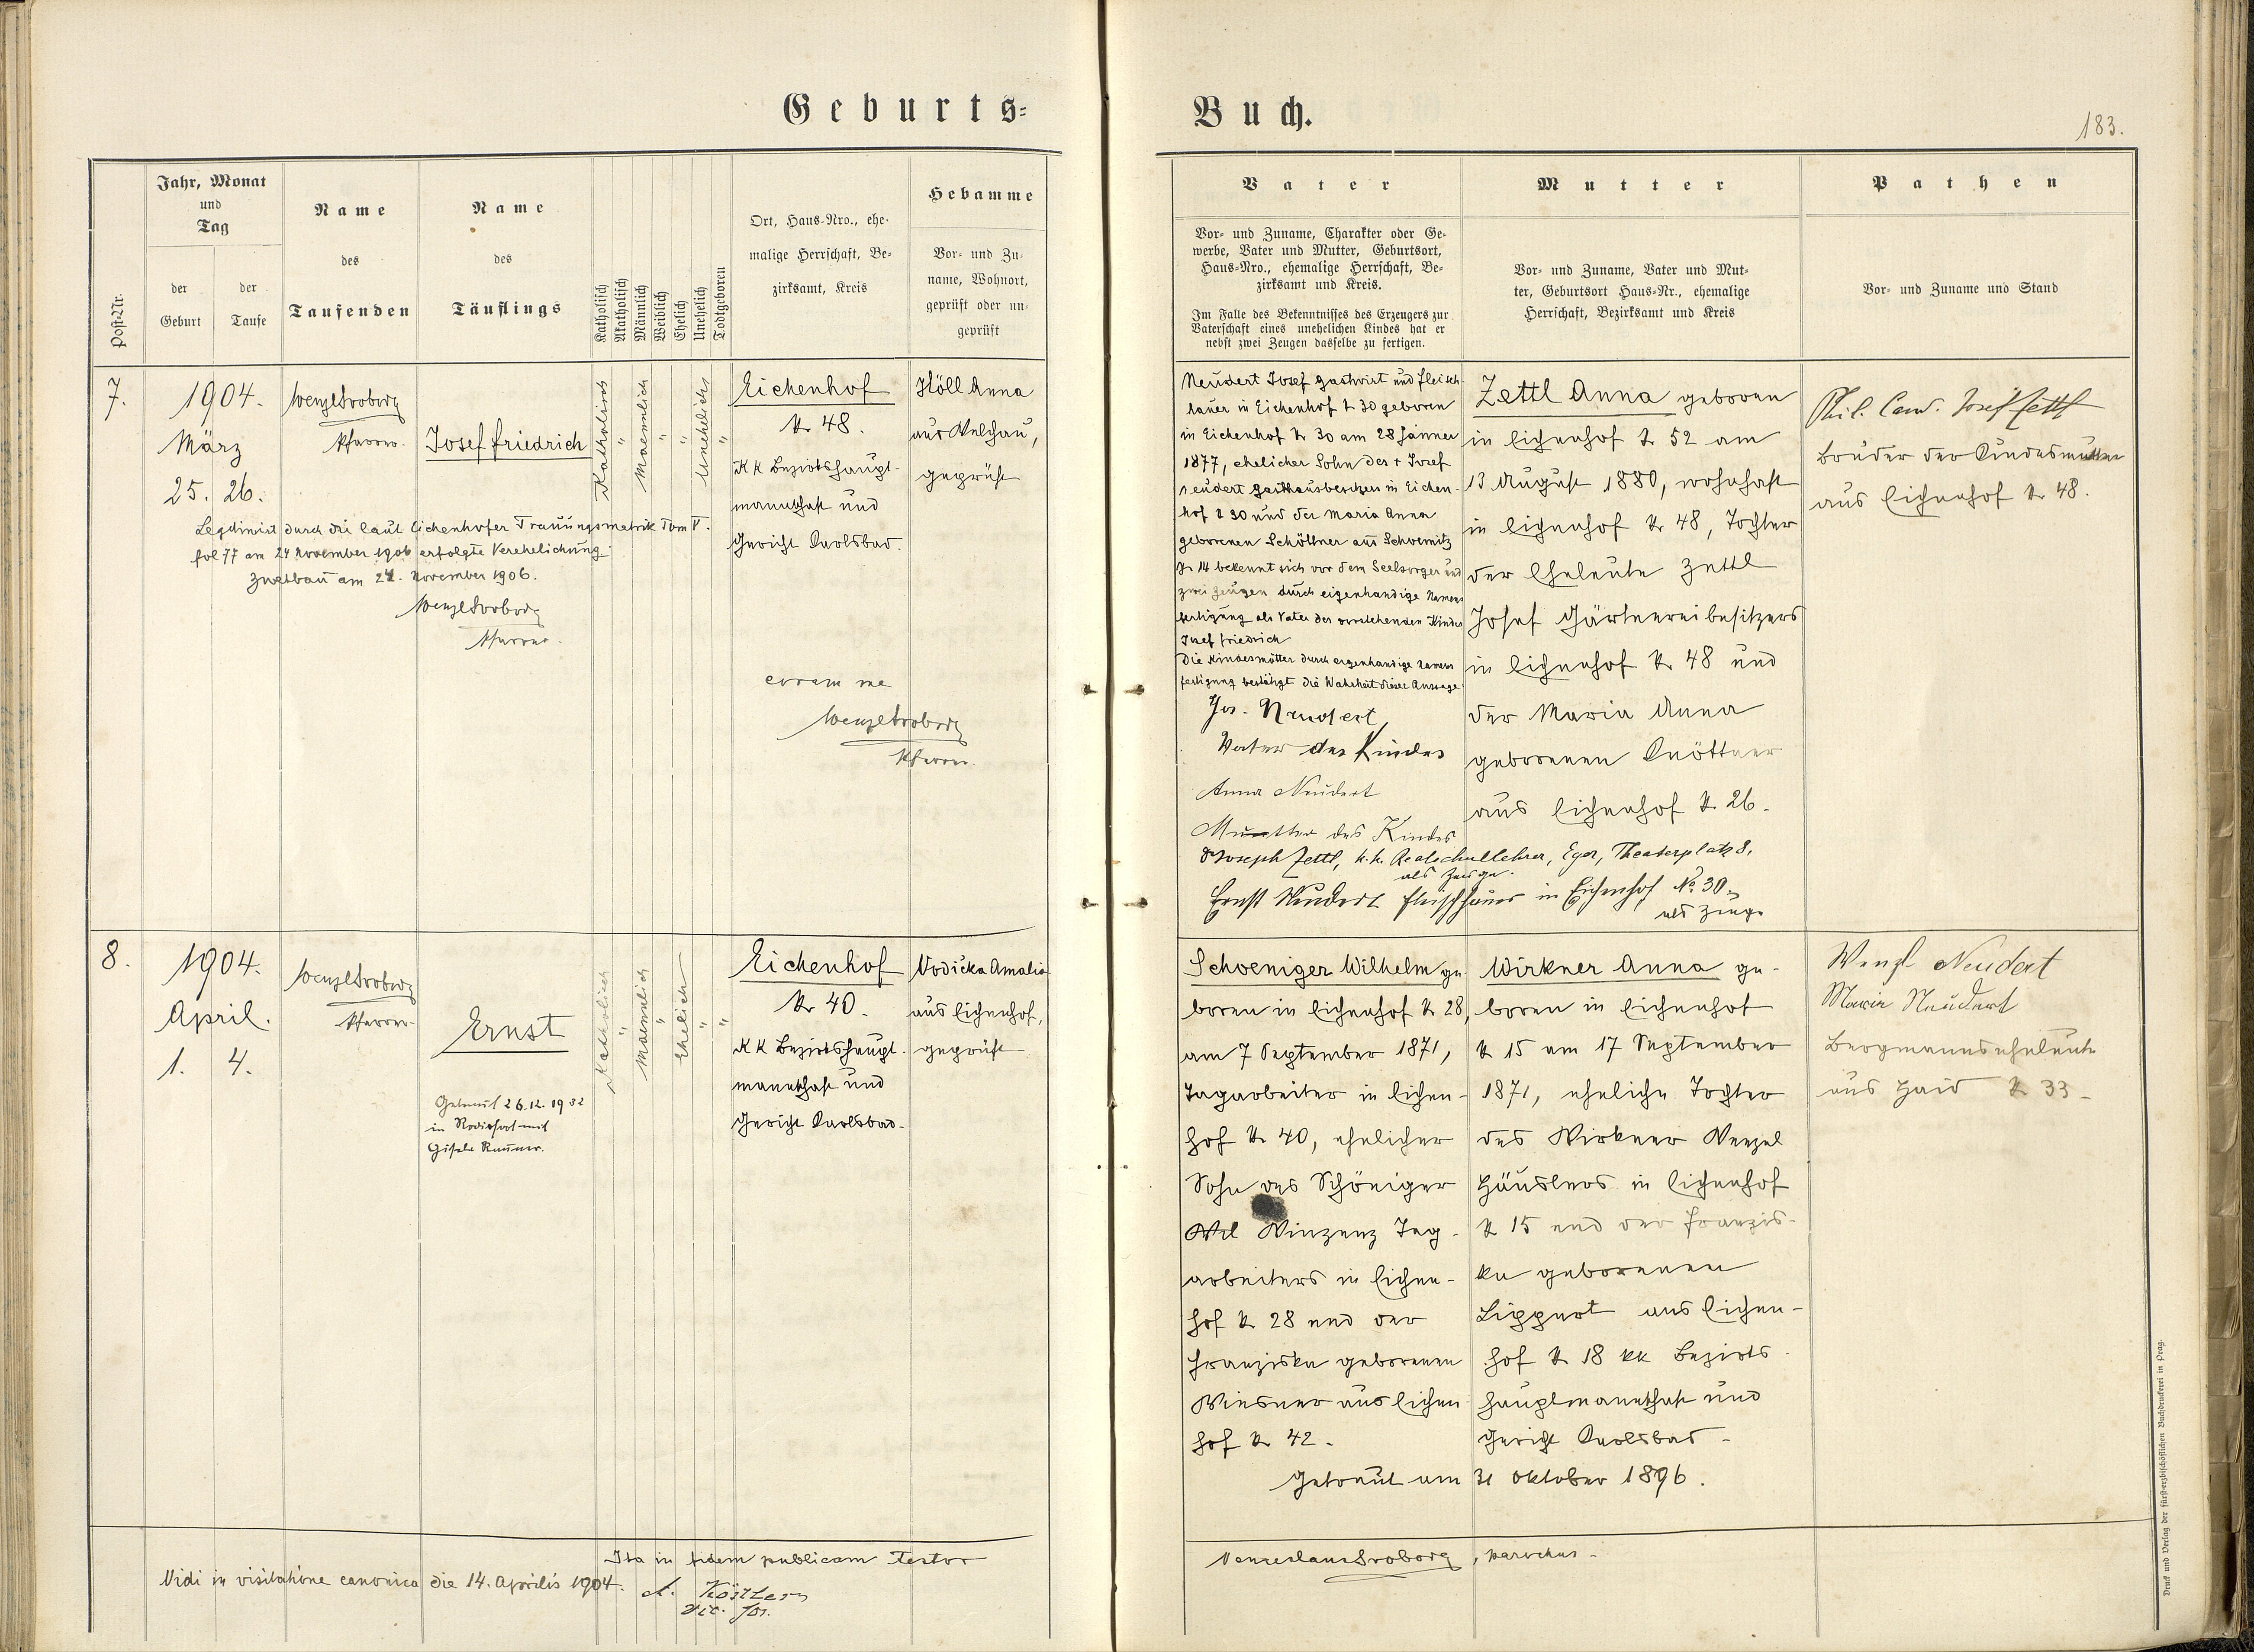 Geburts=
Buch.
183.
Post-Nr.
Jahr, Monat
und
Tag
der
Geburt
der
Taufe
Name
des
Taufenden
Name
des
Täuflings
Katholisch
Akatholisch
Männlich
Weiblich
Ehelich
Unehelich
Todtgeboren
Ort, Haus-Nro., ehe-
malige Herrschaft, Be-
zirksamt, Kreis
Hebamme
Vor- und Zu-
name, Wohnort,
geprüft oder un-
geprüft
Vater
Vor- und Zuname, Charakter oder Ge-
werbe, Vater und Mutter, Geburtsort,
Haus-Nro., ehemalige Herrschaft, Be-
zirksamt und Kreis.
Im Falle des Bekenntnisses des Erzeugers zur
Vaterschaft eines unehelichen Kindes hat er
nebst zwei Zeugen dasselbe zu fertigen.
Mutter
Vor- und Zuname, Vater und Mut-
ter, Geburtsort Haus-Nr., ehemalige
Herrschaft, Bezirksamt und Kreis
Pathen
Vor- und Zuname und Stand
7.
1904.
März
25. 26.
Wenzl Svoboda
Pfarrer.
Josef Friedrich
Katholisch
"
Maennlich
"
"
Unehelich
"
Eichenhof
N. 48.
KK Bezirkshaupt-
mannschaft und
Gericht Karlsbad.
Höll Anna
aus Welchau,
geprüft
Legitimirt durch die laut Eichenhofer Trauungsmatrik Tom V.
fol 77 am 24 November 1906 erfolgte Verehelichung
Zwetbau am 24. November 1906.
Wenzl Svoboda
Pfarrer.
coram me
Wenzl Svoboda
Pfarrer.
Neudert Josef Gastwirt und Fleisch-
hauer in Eichenhof N 30 geboren
in Eichenhof N 30 am 28 Jänner
1877, ehelicher Sohn des + Josef
Neudert Gasthausbesitzers in Eichen-
hof N 30 und der Maria Anna
geborenen Schöttner aus Schoemitz
N 14 bekennt sich vor dem Seelsorger und
zwei Zeugen durch eigenhändige Namens
fertigung als Vater des vorstehenden Kindes
Josef Friedrich
Die Kindesmutter durch eigenhändige Namens
fertigung bestätigt die Wahrheit dieser Aussage.
Jos. Neudert
Vater des Kindes
Anna Neudert
Mutter des Kindes
Dr Joseph Zettl, k.k. Realschullehrer, Eger, Theaterplatz 8,
als Zeuge.
Ernst Neudert Fleischhauer in Eichenhof No. 30.
als Zeuge
Zettl Anna geboren
in Eichenhof N. 52 am
13 August 1880, wohnhaft
in Eichenhof N. 48, Tochter
der Eheleute Zettl
Josef Gärtnereibesitzers
in Eichenhof N. 48 und
der Maria Anna
geborenen Knöttner
aus Eichenhof N. 26.
Phil. Cand. Josef Zettl
Bruder der Kindesmutter
aus Eichenhof N. 48.
8.
1904.
April.
1. 4.
Wenzl Svoboda
Pfarrer.
Ernst
Getraut 26.12.1932
in Rodisfort mit
Gisela
Katholisch
"
Maennlich
"
Ehelich
"
"
Eichenhof
N. 40.
KK Bezirkshaupt-
mannschaft und
Gericht Karlsbad.
Vodička Amalia
aus Eichenhof,
geprüft
Schoeniger Wilhelm ge-
boren in Eichenhof N. 28,
am 7 September 1871,
Tagarbeiter in Eichen-
hof N. 40, ehelicher
Sohn des Schöniger
Wil Vinzenz Tag-
arbeiters in Eichen-
hof N. 28 und der
Franziska geborenen
Wiesner aus Eichen-
hof N. 42.
Wirkner Anna ge-
boren in Eichenhof
N 15 am 17 September
1871, eheliche Tochter
des Wirkner Wenzel
Häuslers in Eichenhof
N 15 und der Franzis-
ka geborenen
Lippert aus Eichen-
hof N. 18 kk Bezirks-
hauptmannschaft und
Gericht Karlsbad.
Getraut am 31 Oktober 1896.
Wenzl Neudert
Maria Neudert
Bergmannseheleute
aus Haid N. 33.
Ita in fidem publicam testor
Wenceslaus Svoboda, parochus.
Vidi in visitatione canonica die 14. Aprilis 1904.
A. Köstler
vic. for.
Druck und Verlag der fürsterzbischöflichen Buchdruckerei in Prag.